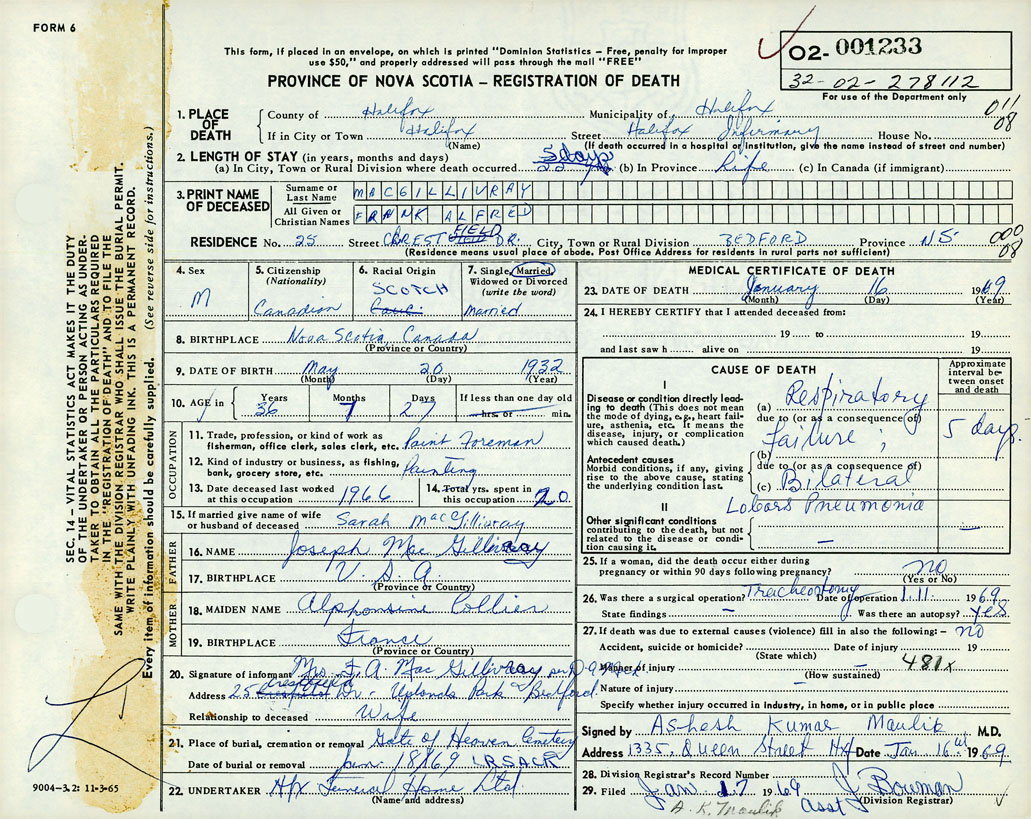 FORM 6
This form, if placed in an envelope, on which is printed "Dominion Statistics – Free, penalty for improper
use $50," and properly addressed will pass through the mail "FREE"
PROVINCE OF NOVA SCOTIA – REGISTRATION OF DEATH
02- 001233
32-02-278112
For use of the Department only
011
08
1. PLACE OF DEATH
County of Halifax Municipality of Halifax
If in City or Town Halifax Street Halifax Infirmary House No.
(Name) (If death occurred in a hospital or institution, give the name instead of street and number)
2. LENGTH OF STAY (in years, months and days)
(a) In City, Town or Rural Division where death occurred 5 days (b) In Province Life (c) In Canada (if immigrant)
3. PRINT NAME OF DECEASED
Surname or Last Name MACGILLIVRAY
All Given or Christian Names FRANK ALFRED
RESIDENCE No. 25 Street CREST FIELD DR. City, Town or Rural Division BEDFORD Province NS
(Residence means usual place of abode. Post Office Address for residents in rural parts not sufficient)
000
08
4. Sex M
5. Citizenship (Nationality) Canadian
6. Racial Origin SCOTCH Cauc.
7. Single, Married, Widowed or Divorced (write the word) Married
8. BIRTHPLACE Nova Scotia, Canada
(Province or Country)
9. DATE OF BIRTH May 20 1932
(Month) (Day) (Year)
10. AGE in Years 36 Months 7 Days 27 If less than one day old hrs. or min.
OCCUPATION
11. Trade, profession, or kind of work as fisherman, office clerk, sales clerk, etc. Paint Foreman
12. Kind of industry or business, as fishing, bank, grocery store, etc. Painting
13. Date deceased last worked at this occupation 1966
14. Total yrs. spent in this occupation 20
15. If married give name of wife or husband of deceased Sarah MacGillivray
FATHER
16. NAME Joseph Mac Gillivray
17. BIRTHPLACE U.S.A.
(Province or Country)
MOTHER
18. MAIDEN NAME Alphonsine Collier
19. BIRTHPLACE France
(Province or Country)
20. Signature of informant Mrs. F. A. Mac Gillivray per
Address 25 Crestfield Dr. - Uplands Park Bedford
Relationship to deceased Wife
21. Place of burial, cremation or removal Gate of Heaven Cemetery
Date of burial or removal Jan. 18 1969 LR.SACK
22. UNDERTAKER Hfx Funeral Home Ltd.
(Name and address)
MEDICAL CERTIFICATE OF DEATH
23. DATE OF DEATH January 16 1969
(Month) (Day) (Year)
24. I HEREBY CERTIFY that I attended deceased from:
19 to 19
and last saw h alive on 19
CAUSE OF DEATH
Approximate interval between onset and death
I
Disease or condition directly leading to death (This does not mean the mode of dying, e.g., heart failure, asthenia, etc. It means the disease, injury, or complication which caused death.)
(a) Respiratory
due to (or as a consequence of)
Failure; 5 days.
Antecedent causes
Morbid conditions, if any, giving rise to the above cause, stating the underlying condition last.
(b)
due to (or as a consequence of)
(c) Bilateral
Lobars Pneumonia
II
Other significant conditions contributing to the death, but not related to the disease or condition causing it. –
25. If a woman, did the death occur either during pregnancy or within 90 days following pregnancy? no
(Yes or No)
26. Was there a surgical operation? Tracheostomy Date of operation 1.11 1969
State findings – Was there an autopsy? yes
27. If death was due to external causes (violence) fill in also the following:– no
Accident, suicide or homicide? Date of injury 19
(State which)
Manner of injury – 481x
(How sustained)
Nature of injury
Specify whether injury occurred in industry, in home, or in public place
Signed by Ashesh Kumar Maulik M.D.
Address 1335, Queen Street Hfx Date Jan 16th 1969
28. Division Registrar's Record Number
29. Filed Jan 17 1969 J Bowman
A. K. Maulik asst (Division Registrar)
SEC. 14 – VITAL STATISTICS ACT MAKES IT THE DUTY
OF THE UNDERTAKER OR PERSON ACTING AS UNDER-
TAKER TO OBTAIN ALL THE PARTICULARS REQUIRED
IN THE "REGISTRATION OF DEATH" AND TO FILE THE
SAME WITH THE DIVISION REGISTRAR WHO SHALL ISSUE THE BURIAL PERMIT.
WRITE PLAINLY WITH UNFADING INK. THIS IS A PERMANENT RECORD.
Every item of information should be carefully supplied. (See reverse side for instructions.)
9004-3.2: 11-3-65